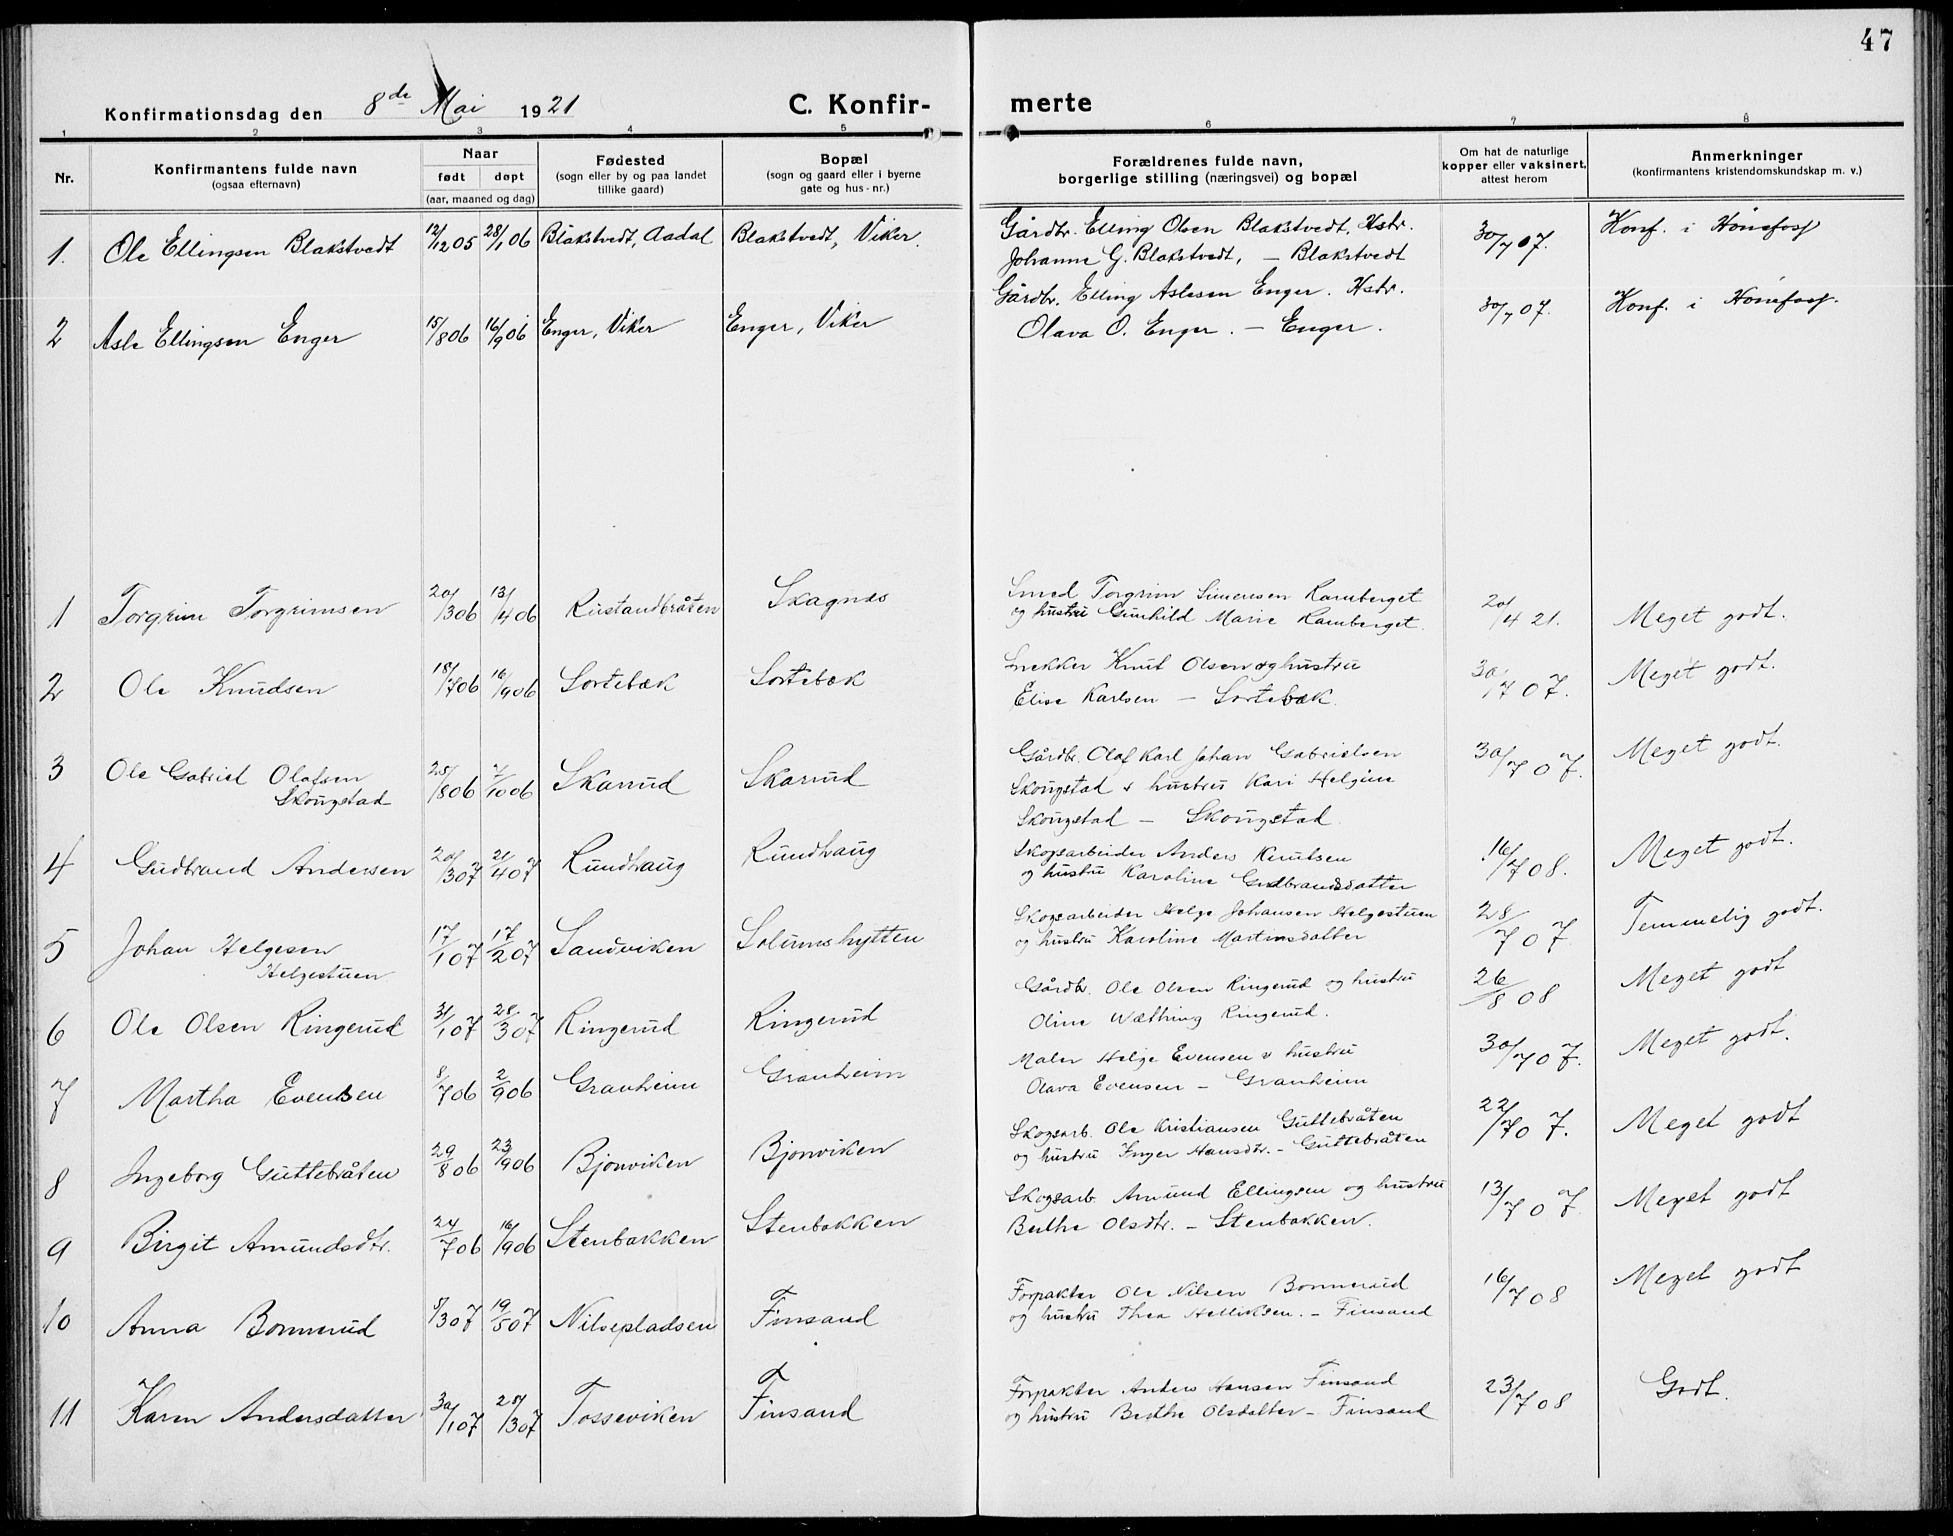 47
Konfirmationsdag den 8de Mai 1921
C. Konfir-merte
1 2 3 4 5 6 7 8
Nr. | Konfirmantens fulde navn (ogsaa efternavn) | Naar født døpt (aar, maaned og dag) | Fødested (sogn eller by og paa landet tillike gaard) | Bopæl (sogn og gaard eller i byerne gate og hus-nr.) | Forældrenes fulde navn, borgerlige stilling (næringsvei) og bopæl | Om hat de naturlige kopper eller vaksinert, attest herom | Anmerkninger (konfirmantens kristendomskundskap m. v.)
1. Ole Ellingsen Blakstvedt | 12/12 05 | 28/1 06 | Blakstvedt, Aadal | Blakstvedt, Viker. | Gårdbr. Elling Olsen Blakstvedt, Hstr. Johanne G. Blakstvedt, – Blakstvedt | 30/7 07. | Konf. i Hønefoss
2 Asle Ellingsen Enger | 15/8 06 | 16/9 06 | Enger, Viker | Enger, Viker | Gårdbr. Elling Aslesen Enger. Hstr. Olava O. Enger. – Enger. | 30/7 07. | Konf. i Hønefoss.
1 Torgrim Torgrimsen | 20/3 06 | 13/4 06 | Rustandbråten | Skagnes | Smed Torgrim Simensen Ramberget og hustru Gunhild Marie Ramberget. | 20/4 21. | Meget godt.
2 Ole Knudsen | 18/7 06 | 16/9 06 | Sortebæk | Sortebæk | Snekker Knut Olsen og hustru Elise Karlsen – Sortebæk. | 30/7 07. | Meget godt.
3 Ole Gabriel Olafsen Skougstad | 25/8 06 | 7/10 06 | Skarrud | Skarrud | Gårdbr. Olaf Karl Johan Gabrielsen Skougstad & hustru Kari Helgine Skougstad – Skougstad | 30/7 07. | Meget godt.
4 Gudbrand Andersen | 20/3 07 | 21/4 07 | Rundhaug | Rundhaug | Skogsarbeider Anders Knutsen og hustru Karoline Gudbrandsdatter | 16/7 08. | Meget godt.
5 Johan Helgesen Helgestuen | 17/1 07 | 17/2 07 | Sandviken | Solumshytten | Skogsarbeider Helge Johansen Helgestuen og hustru Karoline Martinsdatter | 28/7 07 | Temmelig godt.
6 Ole Olsen Ringerud | 31/1 07 | 28/3 07 | Ringerud | Ringerud | Gårdbr. Ole Olsen Ringerud og hustru Oline Wæthing Ringerud. | 26/8 08 | Meget godt
7 Martha Evensen | 8/7 06 | 2/9 06 | Granheim | Granheim | Maler Helge Evensen & hustru Olava Evensen – Granheim | 30/7 07. | Meget godt.
8 Ingeborg Guttebråten | 29/8 06 | 23/9 06 | Bjonviken | Bjonviken | Skogsarb. Ole Kristiansen Guttebråten og hustru Inger Hansdtr. – Guttebråten | 22/7 07. | Meget godt
9 Birgit Amundsdtr. | 24/7 06 | 16/9 06 | Stenbakken | Stenbakken | Skogsarb. Amund Ellingsen og hustru Berthe Olsdtr. – Stenbakken. | 13/7 07. | Meget godt
10 Anna Bonnerud | 8/3 07 | 19/5 07 | Nilsepladsen | Finsand | Forpakter Ole Nilsen Bonnerud og hustru Thea Helliksen. – Finsand | 16/7 08 | Meget godt
11 Karen Andersdatter | 30/1 07 | 28/3 07 | Tosseviken | Finsand | Forpakter Anders Hansen Finsand og hustru Berthe Olsdatter – Finsand | 23/7 08 | Godt.